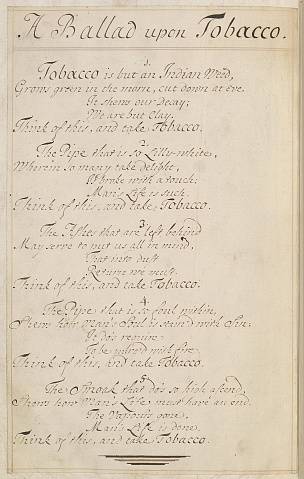 A Ballad upon Tobacco.
1.
Tobacco is but an Indian Weed,
Grows green in the morn, cut down at eve.
It shews our Decay;
We are but Clay.
Think of this, and take Tobacco.
2
The Pipe that is so Lilly-white,
Wherein so many take delight,
Is broke with a touch;
Man's Life is such.
Think of this, and take Tobacco.
3
The Ashes that are left behind
May serve to put us all in mind,
That unto dust
Return we must.
Think of this, and take Tobacco.
4.
The Pipe that is so foul within,
Shews how Man's Soul is stain'd with Sin;
It do's require
To be purg'd with fire.
Think of this, and take Tobacco.
5
The Smoak that do's so high ascend,
Shows how Man's Life must have an end.
The Vapour's gone,
Man's Life is done.
Think of this, and take Tobacco.